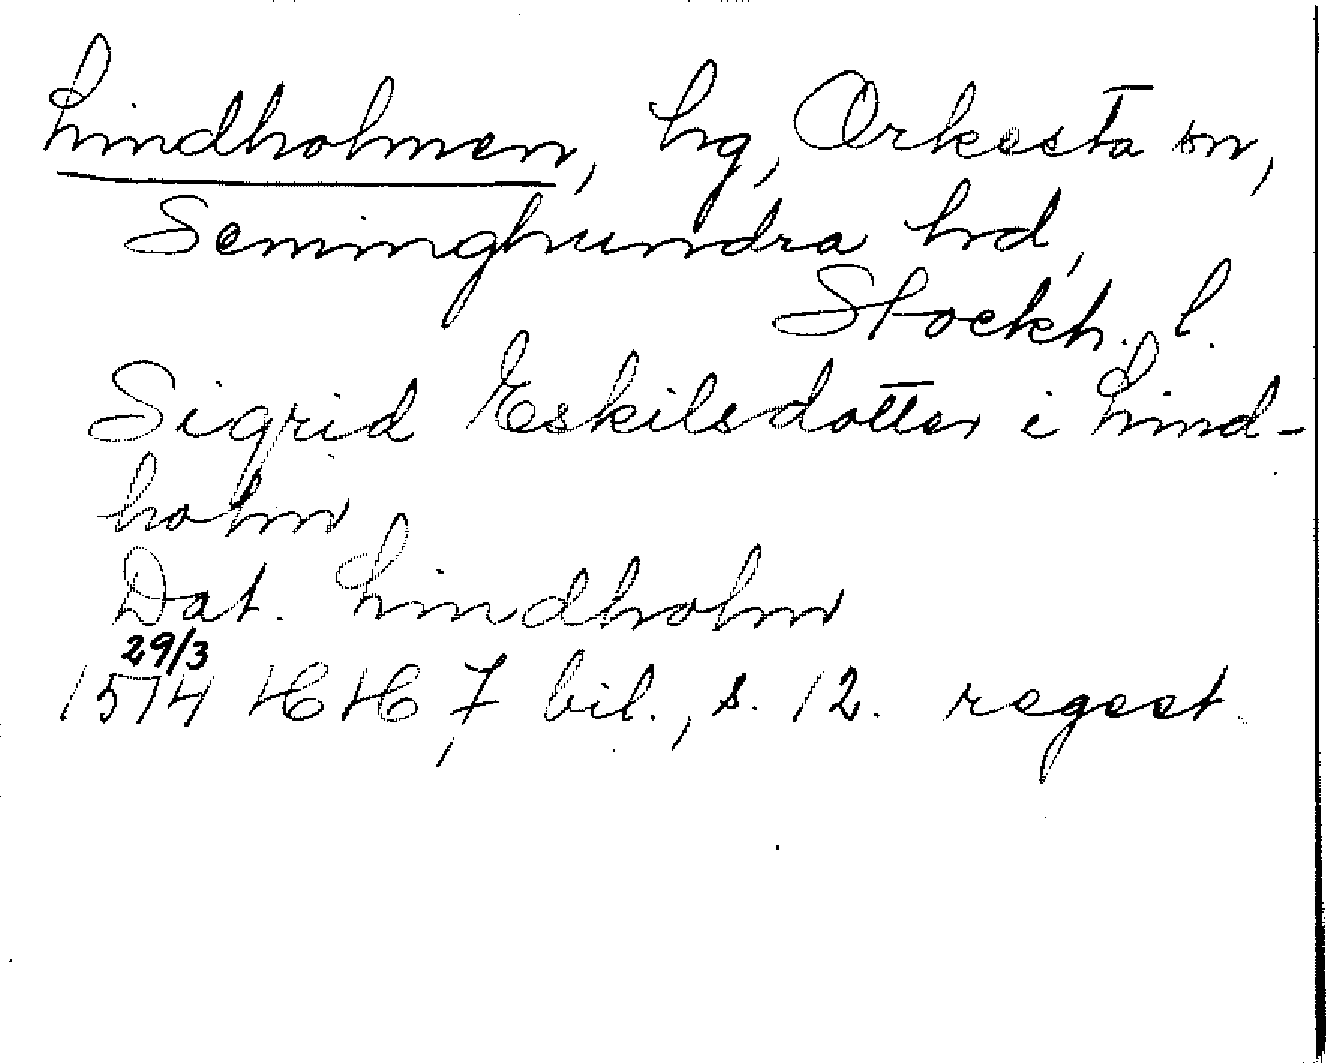 Lindholmen, hg, Orkesta sn,
Seminghundra hd,
Stockh. l.
Sigrid Eskilsdotter i Lind-
holm
Dat. Lindholm
29/3
1574 HH, 7 bil., s. 12. regest.